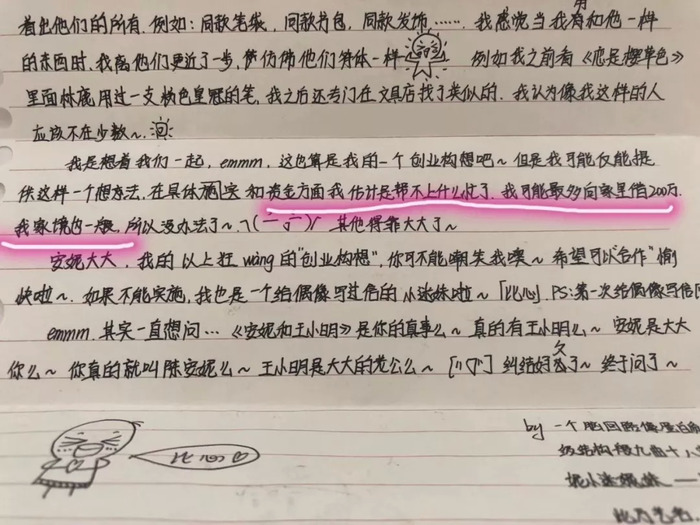 看出他们的所有.例如:同款笔袋,同款书包,同款发饰……我感觉当我有和他一样
的东西时,我离他们更近了一步,仿佛他们 一样 例如我之前看《恋是樱草色》
里面林鹿用过一支粉色皇冠的笔,我之后还专门在文具店找了类似的.我认为像我这样的人
应该不在少数~.
我是想着我们一起,emmm.这也算是我的一个创业构想吧~但是我可能仅能提
供这样一个想法,在具体施实和资金方面我估计是帮不上什么忙了.我可能最多向家里借200万.
我家境也一般,所以没办法了~. 其他得靠大大了~
安妮大大,我的以上狂wàng的"创业构想",你可不能嘲笑我噢~希望可以"合作"愉
快啦~.如果不能实施,我也是一个给偶像写过信的小迷妹啦~「比心」.PS:第一次给偶像写信
emmm.其实一直想问…《安妮和王小明》是你的真事么~真的有王小明么~安妮是大大
你么~你真的就叫陈安妮么~王小明是大大的老公么~ 纠结好久了~终于问了~
比心
by 一个脑回路像蛋白
级结构 九曲十八
妮小迷妹